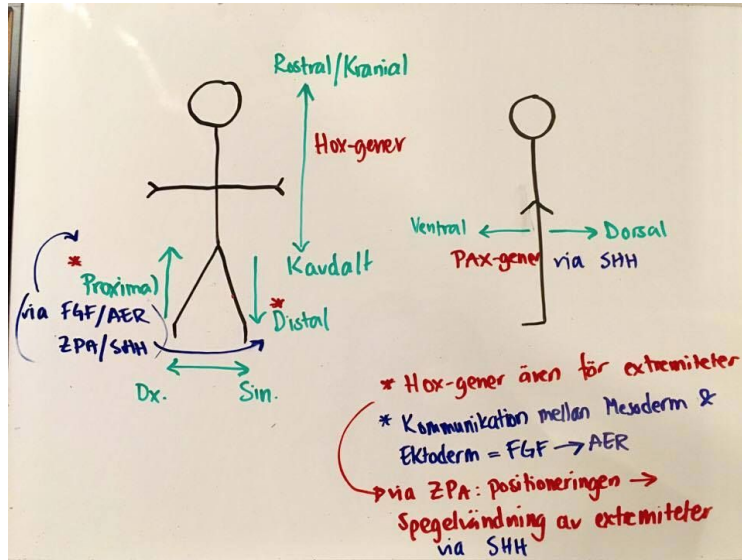 Rostral/Kranial
Hox-gener
Kaudalt
* Proximal
(via FGF/AER
ZPA/SHH)
* Distal
Dx. Sin.
Ventral Dorsal
PAX-gener via SHH
* Hox-gener även för extremiteter
* Kommunikation mellan Mesoderm &
Ektoderm = FGF → AER
via ZPA: positioneringen →
Spegelvändning av extremiteter
via SHH